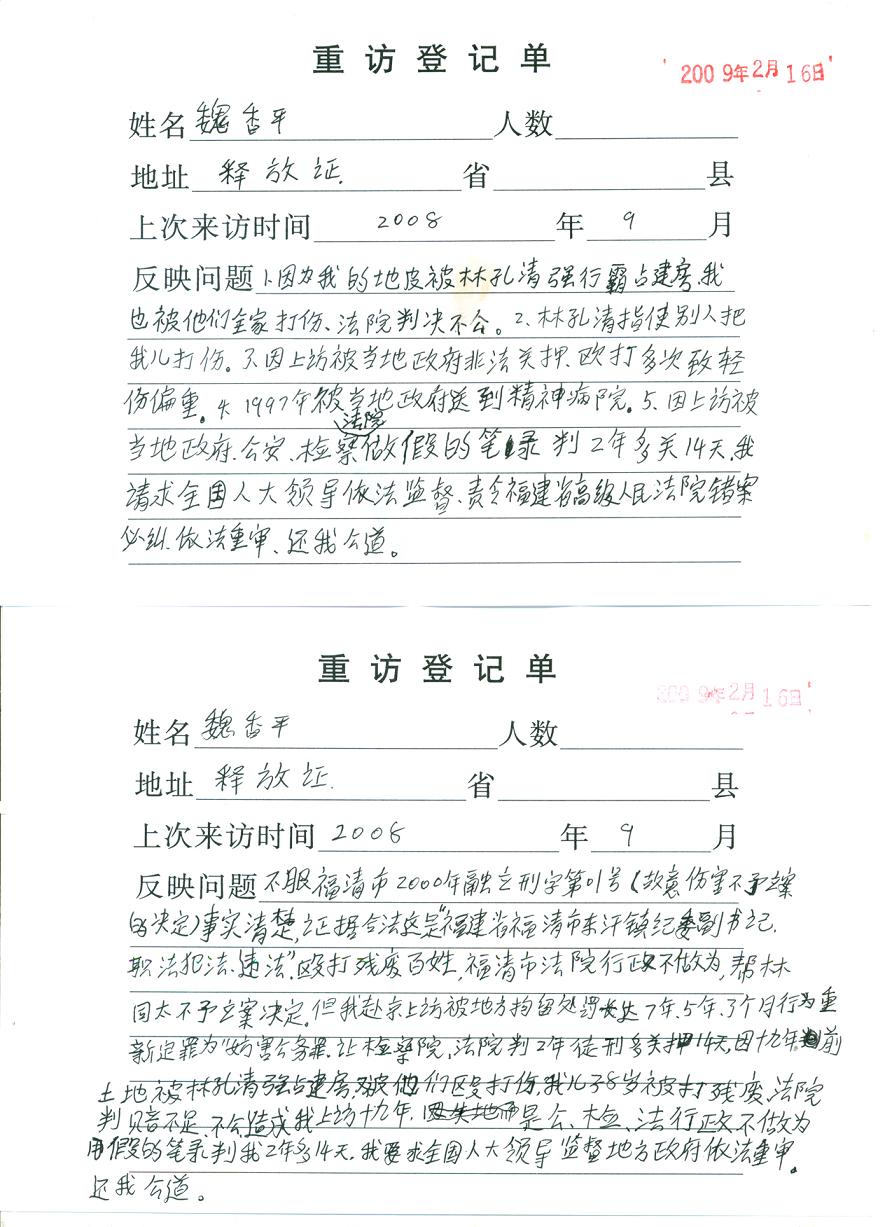 重访登记单
2009年2月16日
姓名 魏香平 人数
地址 释放证. 省 县
上次来访时间 2008 年 9 月
反映问题 1、因为我的地皮被林孔清强行霸占建房,我
也被他们全家打伤、法院判决不公。2、林孔清指使别人把
我儿打伤。3、因上访被当地政府非法关押、欧打多次致轻
伤偏重。4、1997年被当地政府送到精神病院。5、因上访被
法院
当地政府、公安、检察做假的笔录判2年多关14天,我
请求全国人大领导依法监督、责令福建省高级人民法院错案
必纠、依法重审、还我公道。
重访登记单
2009年2月16日
姓名 魏香平 人数
地址 释放证. 省 县
上次来访时间 2008 年 9 月
反映问题 不服福清市2000年融立刑字第01号(故意伤害不予立案
的决定)事实清楚,证据合法这是“福建省福清市东汗镇纪委副书记.
职法犯法、违法”,殴打残废百姓,福清市法院行政不做为,帮林
同太不予立案决定。但我赴京上访被地方拘留处罚长达7年、5年、3个月行为重
新定罪为“妨害公务罪、让检察院,法院判2年徒刑多关押14天,因十九年前
土地被林孔清强占建房,又被他们区殳打伤,我儿38岁被打残废、法院
判赔不足、不公造成我上访十九年. 是公、检、法行政不做为
用假的笔录判我2年多14天、我要求全国人大领导监督地方政府依法重审。
还我公道。